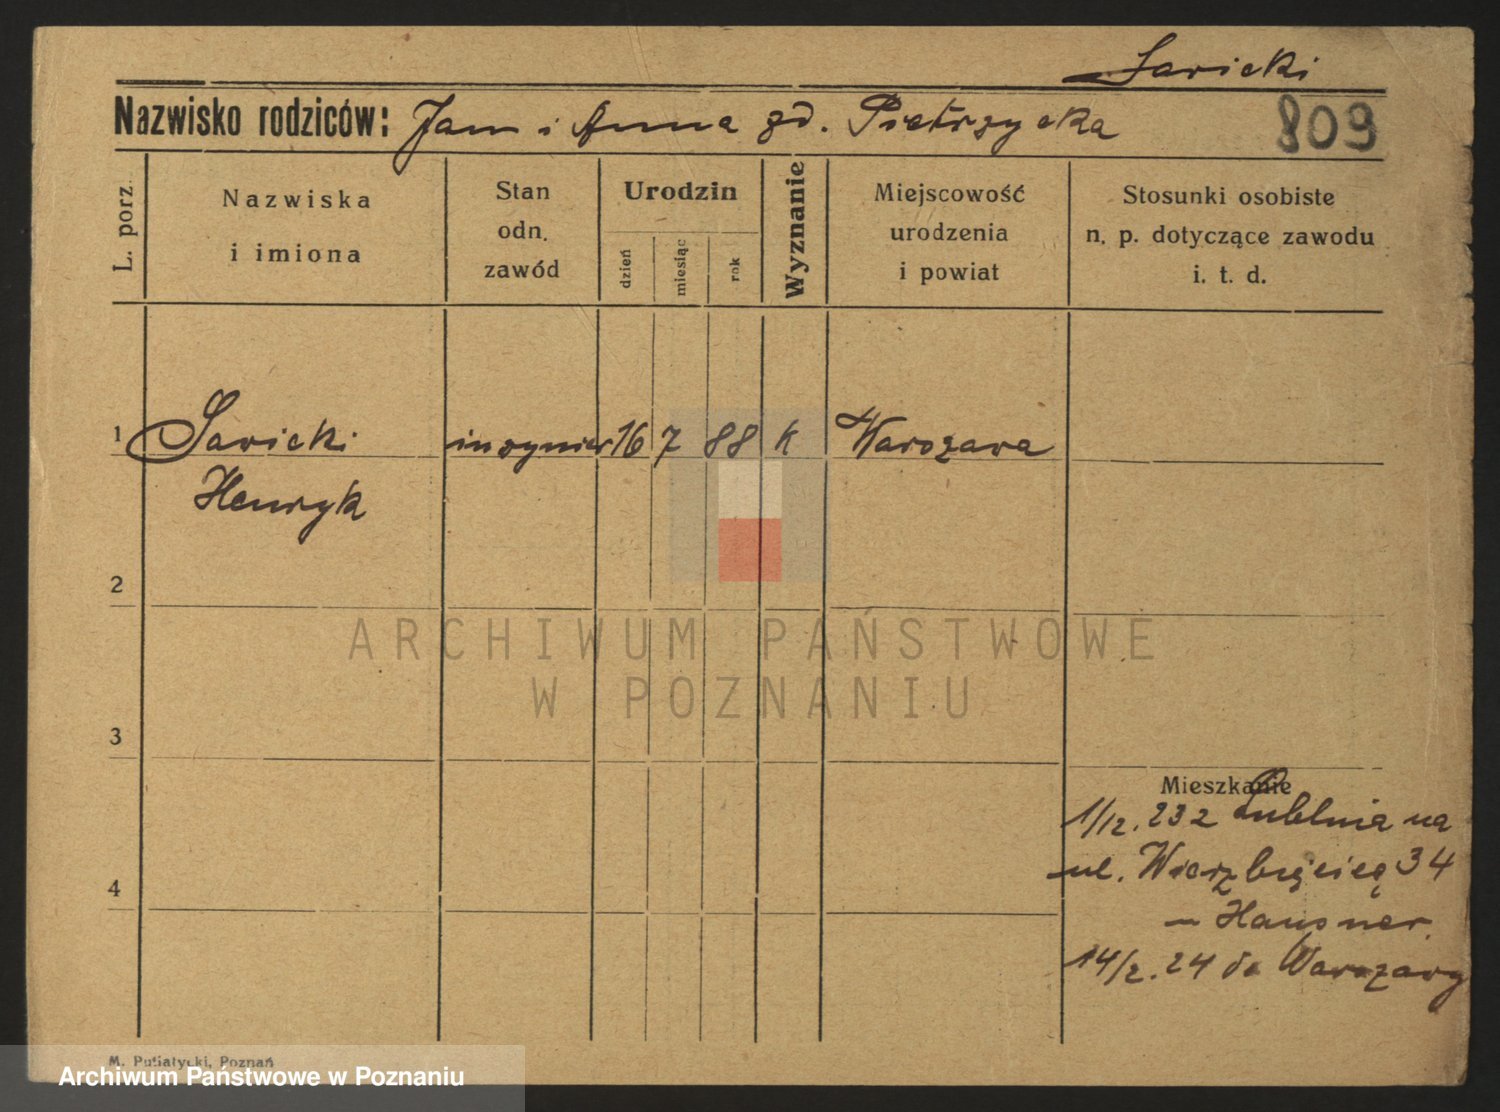 Sawicki
Nazwisko rodziców: Jan i Anna zd. Pietrzycka
809
L. porz.
Nazwiska
i imiona
Stan
odn.
zawód
Urodzin
dzień
miesiąc
rok
Wyznanie
Miejscowość
urodzenia
i powiat
Stosunki osobiste
n. p. dotyczące zawodu
i. t. d.
1 Sawicki inżynier 16 7 88 k Warszawa
Henryk
2
ARCHIWUM PAŃSTWOWE
W POZNANIU
3
Mieszkanie
1/12. 23 z Lublina na
ul. Wierzbięcice 34
– Hausner.
4
14/2. 24 do Warszawy
M. Putiatycki, Poznań
Archiwum Państwowe w Poznaniu